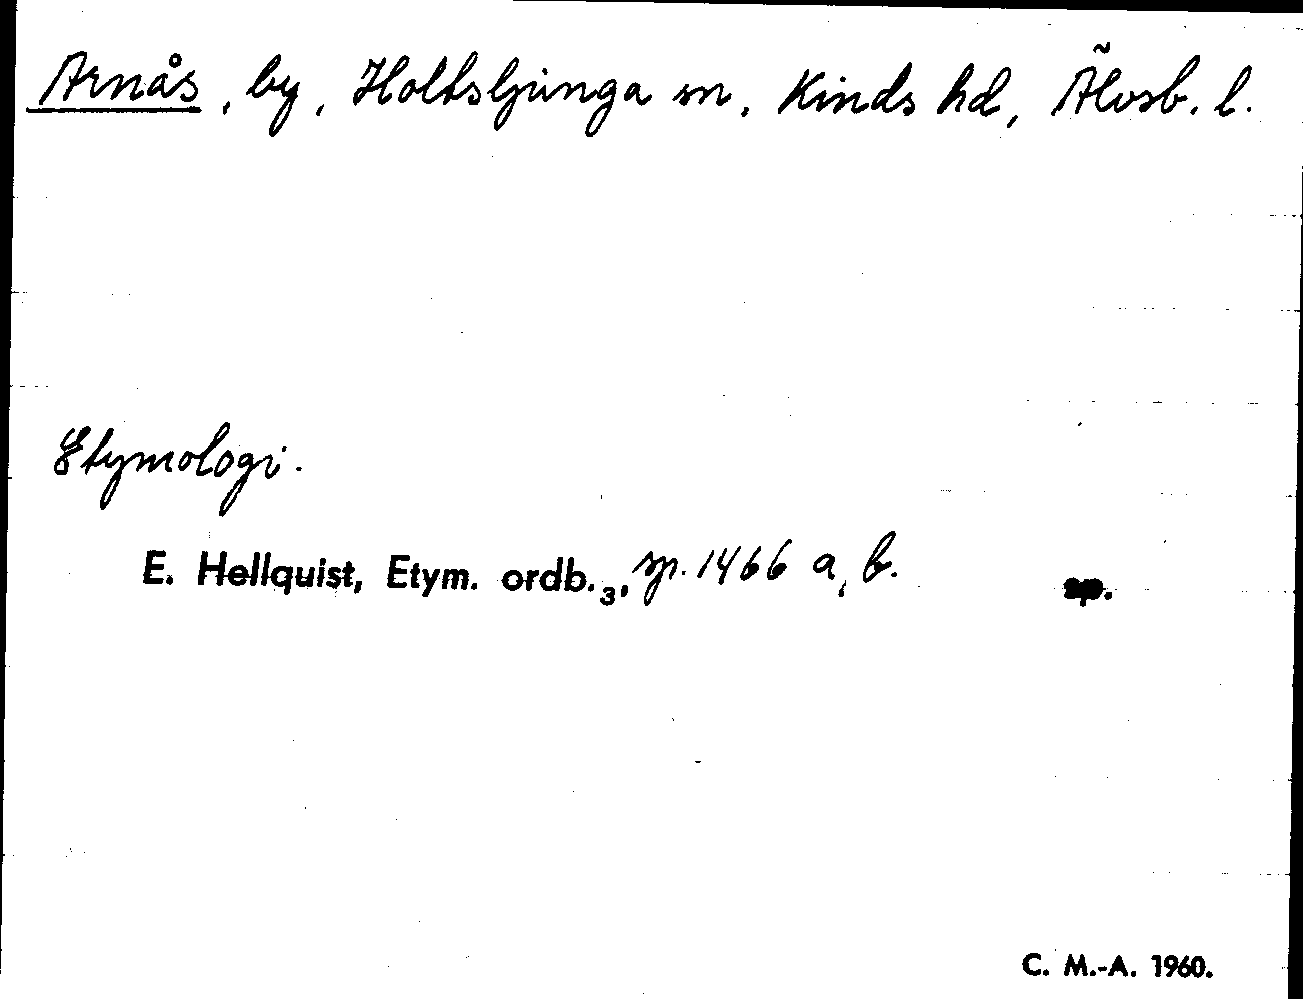 Arnås, by, Holtsljunga sn, Kinds hd, Älvsb. l.
Etymologi.
E. Hellquist, Etym. ordb.₃, sp. 1466 a, b.
C. M.-A. 1960.